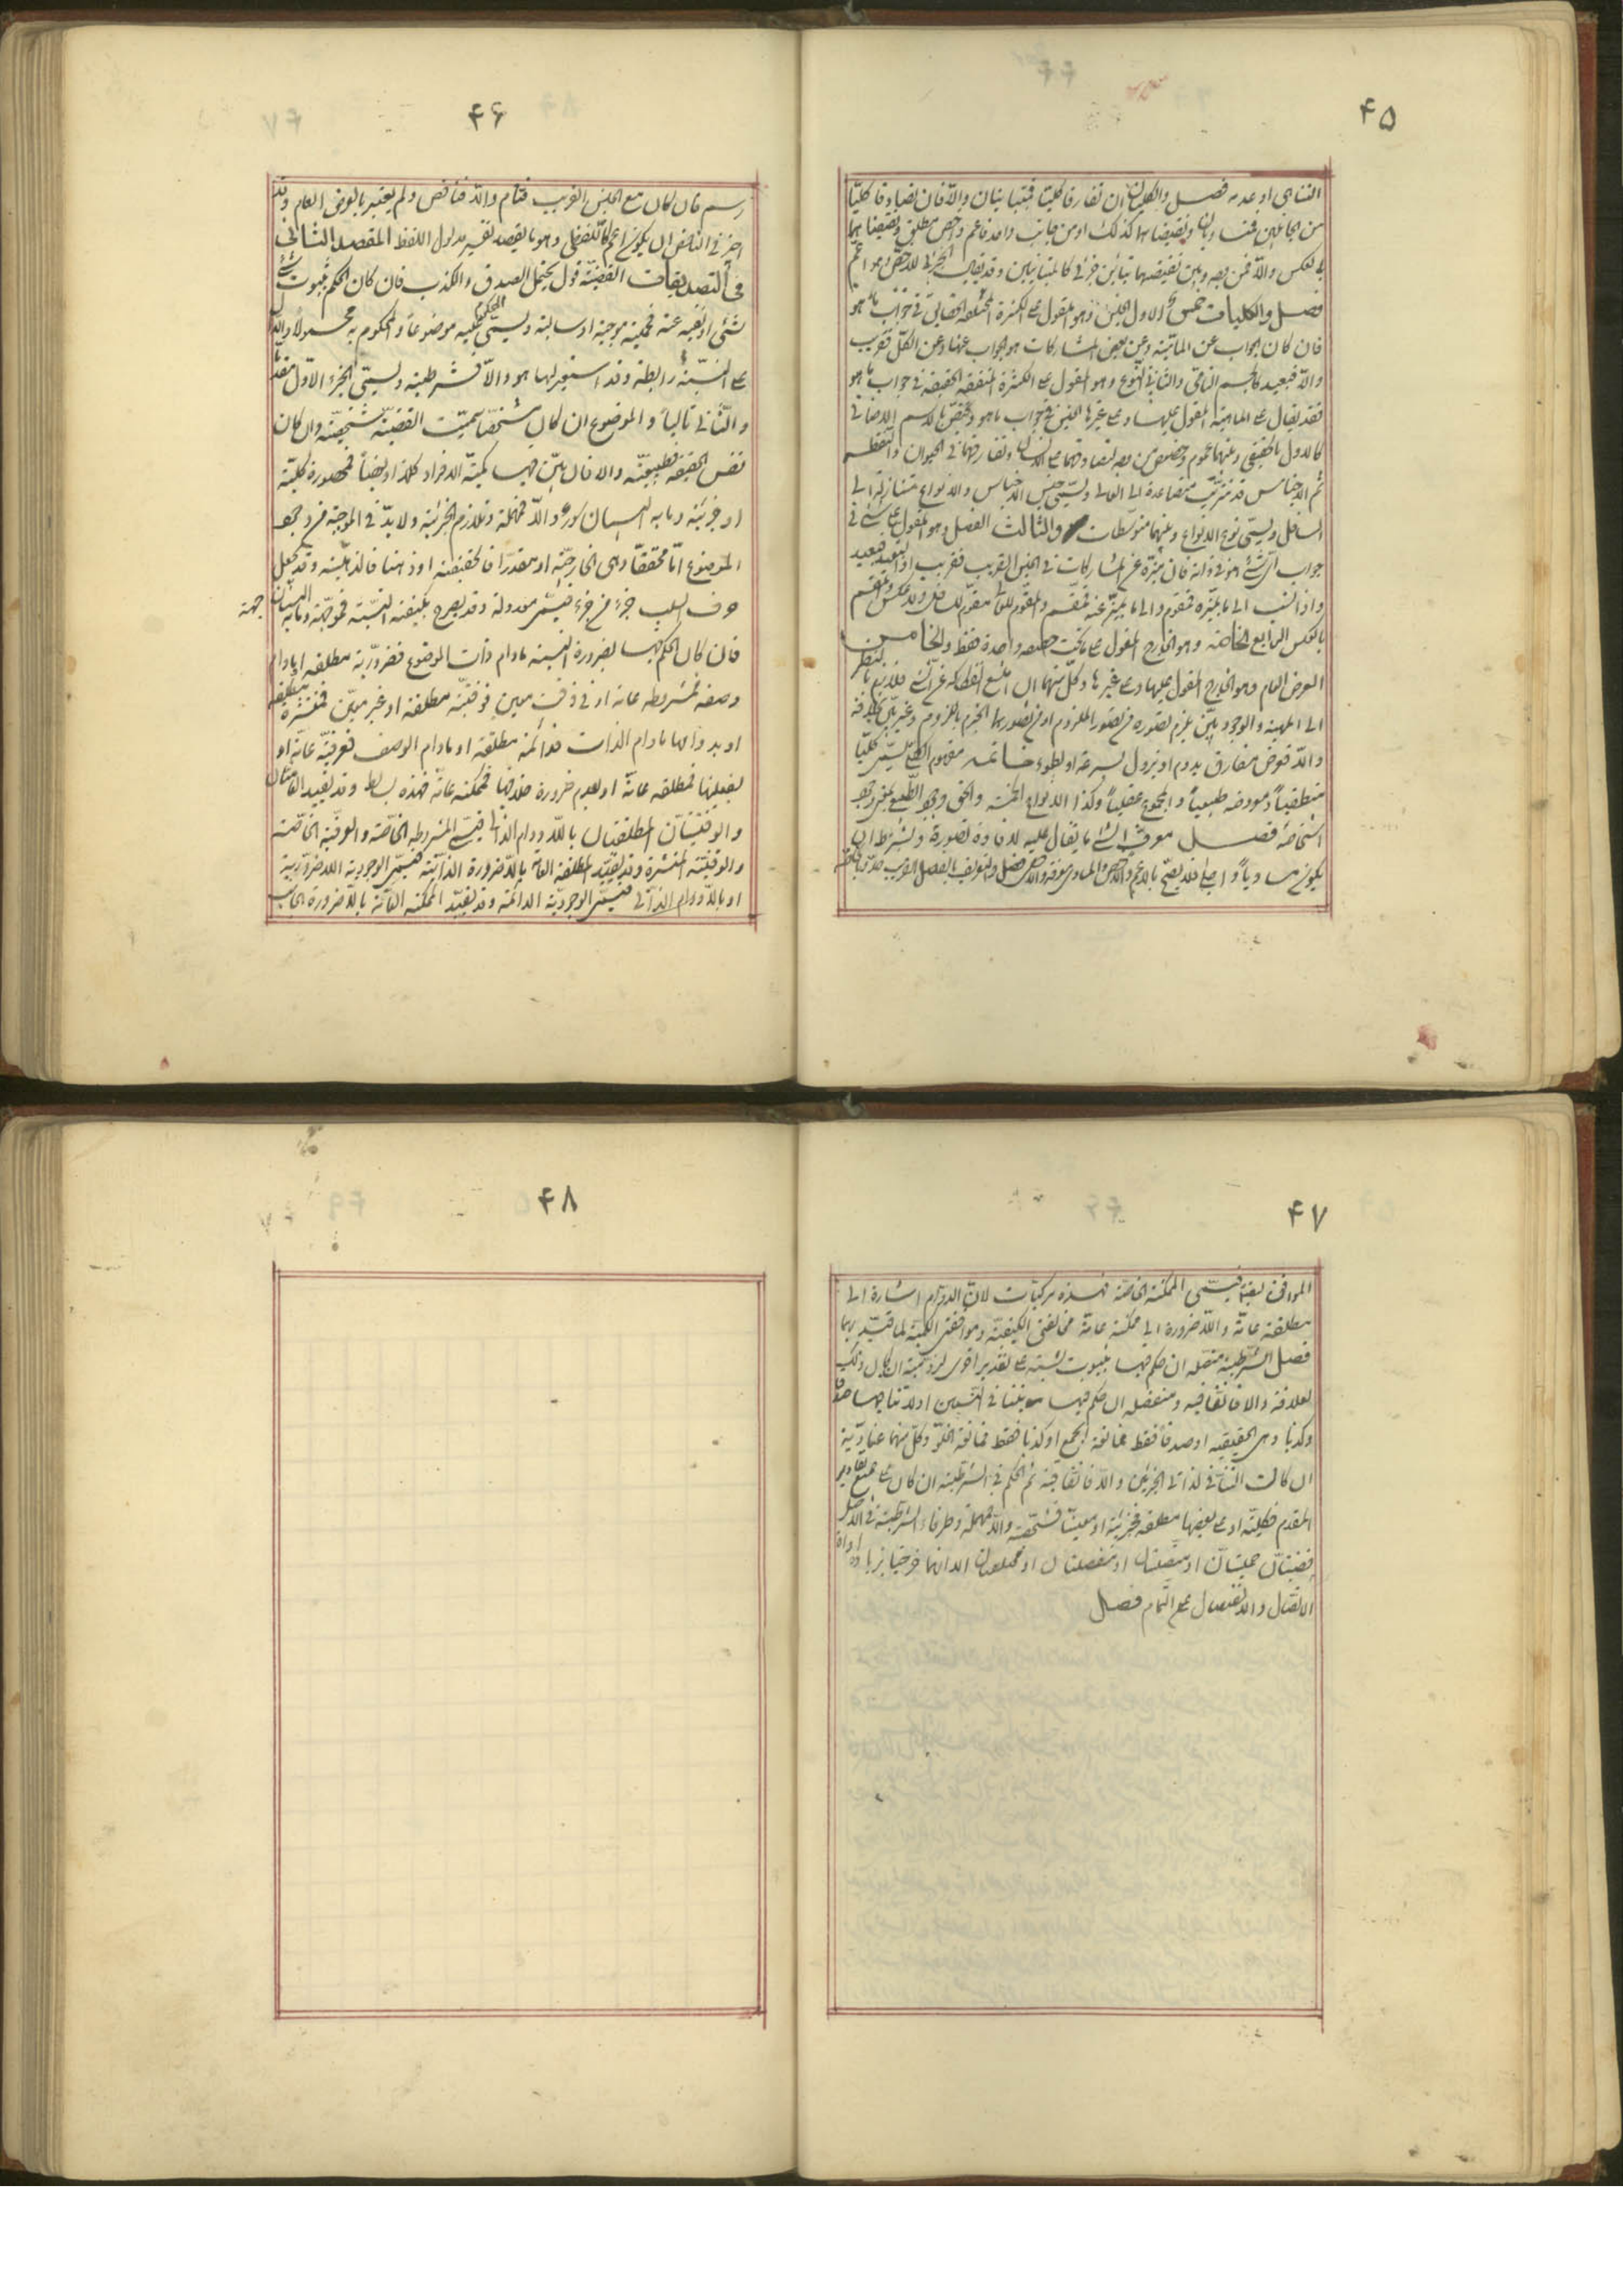 ۴۵
التناهی او عدمه فصل والکلیان ان تفارقا کلیا فمتباینان والا فان تصادقا کلیا
من الجانبین فمتساویان ونقیضاهما کذلک او من جانب واحد فاعم واخص مطلق ونقیضاهما
بالعکس والا فمن وجه وبین نقیضیهما تباین جزئی کالمتباینین وقد یقال الجزئی للاخص وهو اعم
فصل والکلیات خمس الاول الجنس وهو المقول علی الکثرة المختلفة الحقایق فی جواب ما هو
فان کان الجواب عن الماهیة وعن بعض المشارکات هو الجواب عنها وعن الکل فقریب
والا فبعید کالجسم النامی والثانی النوع وهو المقول علی الکثرة المتفقة الحقیقة فی جواب ما هو
فقد یقال علی الماهیة المقول علیها وعلی غیرها الجنس فی جواب ما هو ویختص بالاسم الاضافی
کالاول بالحقیقی وبینهما عموم وخصوص من وجه لتصادقهما علی الانسان وتفارقهما فی الحیوان والنقطة
ثم الاجناس قد تترتب متصاعدة الی العالی ویسمی جنس الاجناس والانواع متنازلة الی
السافل ویسمی نوع الانواع وبینهما متوسطات والثالث الفصل وهو المقول علی الشئ فی
جواب ای شئ هو فی ذاته فان میزه عن المشارکات فی الجنس القریب فقریب او البعید فبعید
واذا نسب الی ما یمیزه فمقوم والی ما یمیز عنه فمقسم والمقوم للعالی مقوم للسافل ولا عکس والمقسم
بالعکس الرابع الخاصة وهو الخارج المقول علی ما تحت حقیقة واحدة فقط والخامس
العرض العام وهو الخارج المقول علیها وعلی غیرها وکل منهما ان امتنع انفکاکه عن الشئ فلازم بالنظر
الی الماهیة او الوجود بین یلزم تصوره من تصور الملزوم او من تصورهما الجزم باللزوم وغیر بین بخلافه
والا فعرض مفارق یدوم او یزول بسرعة او بطوء خاتمة مفهوم الکلی یسمی کلیا
منطقیا ومعروضه طبیعیا والمجموع عقلیا وکذا الانواع الخمسة والحق وجود الطبیعی بمعنی وجود
اشخاصه فصل معرف الشئ ما یقال علیه لافادة تصوره ویشترط ان
یکون مساویا واجلی فلا یصح بالاعم والاخص والمساوی معرفة والاخفی فصل والتعریف بالفصل القریب حد وبالخاصة
۴۶
رسم فان کان مع الجنس القریب فتام والا فناقص ولم یعتبر بالعرض العام وقد
اجیز فی الناقص ان یکون اعم کاللفظی وهو ما یقصد تفسیر مدلول اللفظ المقصد الثانی
فی التصدیقات القضیة قول یحتمل الصدق والکذب فان کان الحکم بثبوت شئ
لشئ او نفیه عنه فحملیة موجبة او سالبة ویسمی المحکوم علیه موضوعا والمحکوم به محمولا والدال
علی النسبة رابطة وقد استعیر لها هو والا فشرطیة ویسمی الجزء الاول مقدما
والثانی تالیا والموضوع ان کان مشخصا سمیت القضیة شخصیة وان کان
نفس الحقیقة فطبیعیة والا فان بین فیها کمیة الافراد کلا او بعضا فمحصورة کلیة
او جزئیة وما به البیان سور والا فمهملة وتلازم الجزئیة ولا بد فی الموجبة من وجود
الموضوع اما محققا وهی الخارجیة او مقدرا فالحقیقیة او ذهنا فالذهنیة وقد یجعل
حرف السلب جزء من جزء فیسمی معدولة وقد یصرح بکیفیة النسبة فموجهة وما به البیان جهة
فان کان الحکم فیها بضرورة النسبة ما دام ذات الموضوع فضروریة مطلقة او ما دام
وصفه فمشروطة عامة او فی وقت معین فوقتیة مطلقة او غیر معین فمنتشرة مطلقة
او بدوامها ما دام الذات فدائمة مطلقة او ما دام الوصف فعرفیة عامة او
بفعلیتها فمطلقة عامة او بعدم ضرورة خلافها فممکنة عامة فهذه بسایط وقد تقید العامتان
والوقتیتان المطلقتان باللادوام الذاتی فیسمی المشروطة الخاصة والعرفیة الخاصة
والوقتیة المنتشرة وقد تقید المطلقة العامة باللاضرورة الذاتیة فیسمی الوجودیة اللاضروریة
او باللادوام الذاتی فیسمی الوجودیة الدائمة وقد تقید الممکنة العامة باللاضرورة الجانب
۴۷
الموافق ایضا فیسمی الممکنة الخاصة فهذه مرکبات لان اللادوام اشارة الی
مطلقة عامة واللاضرورة الی ممکنة عامة مخالفتی الکیفیة وموافقتی الکمیة لما قید بهما
فصل الشرطیة متصلة ان حکم فیها بثبوت نسبة علی تقدیر اخری لزومیة ان کان ذلک
لعلاقة والا فاتفاقیة ومنفصلة ان حکم فیها بتنافی النسبتین او لا تنافیهما صدقا
وکذبا وهی الحقیقیة او صدقا فقط فمانعة الجمع او کذبا فقط فمانعة الخلو وکل منهما عنادیة
ان کانت التنافی لذاتی الجزئین والا فاتفاقیة ثم الحکم فی الشرطیة ان کان علی جمیع تقادیر
المقدم فکلیة او علی بعضها مطلقة فجزئیة او معینا فشخصیة والا فمهملة وطرفا الشرطیة فی الاصل
قضیتان حملیتان او متصلتان او منفصلتان او مختلفتان الا انهما خرجتا بزیادة اداة
الاتصال والانفصال عن التمام فصل
۴۸